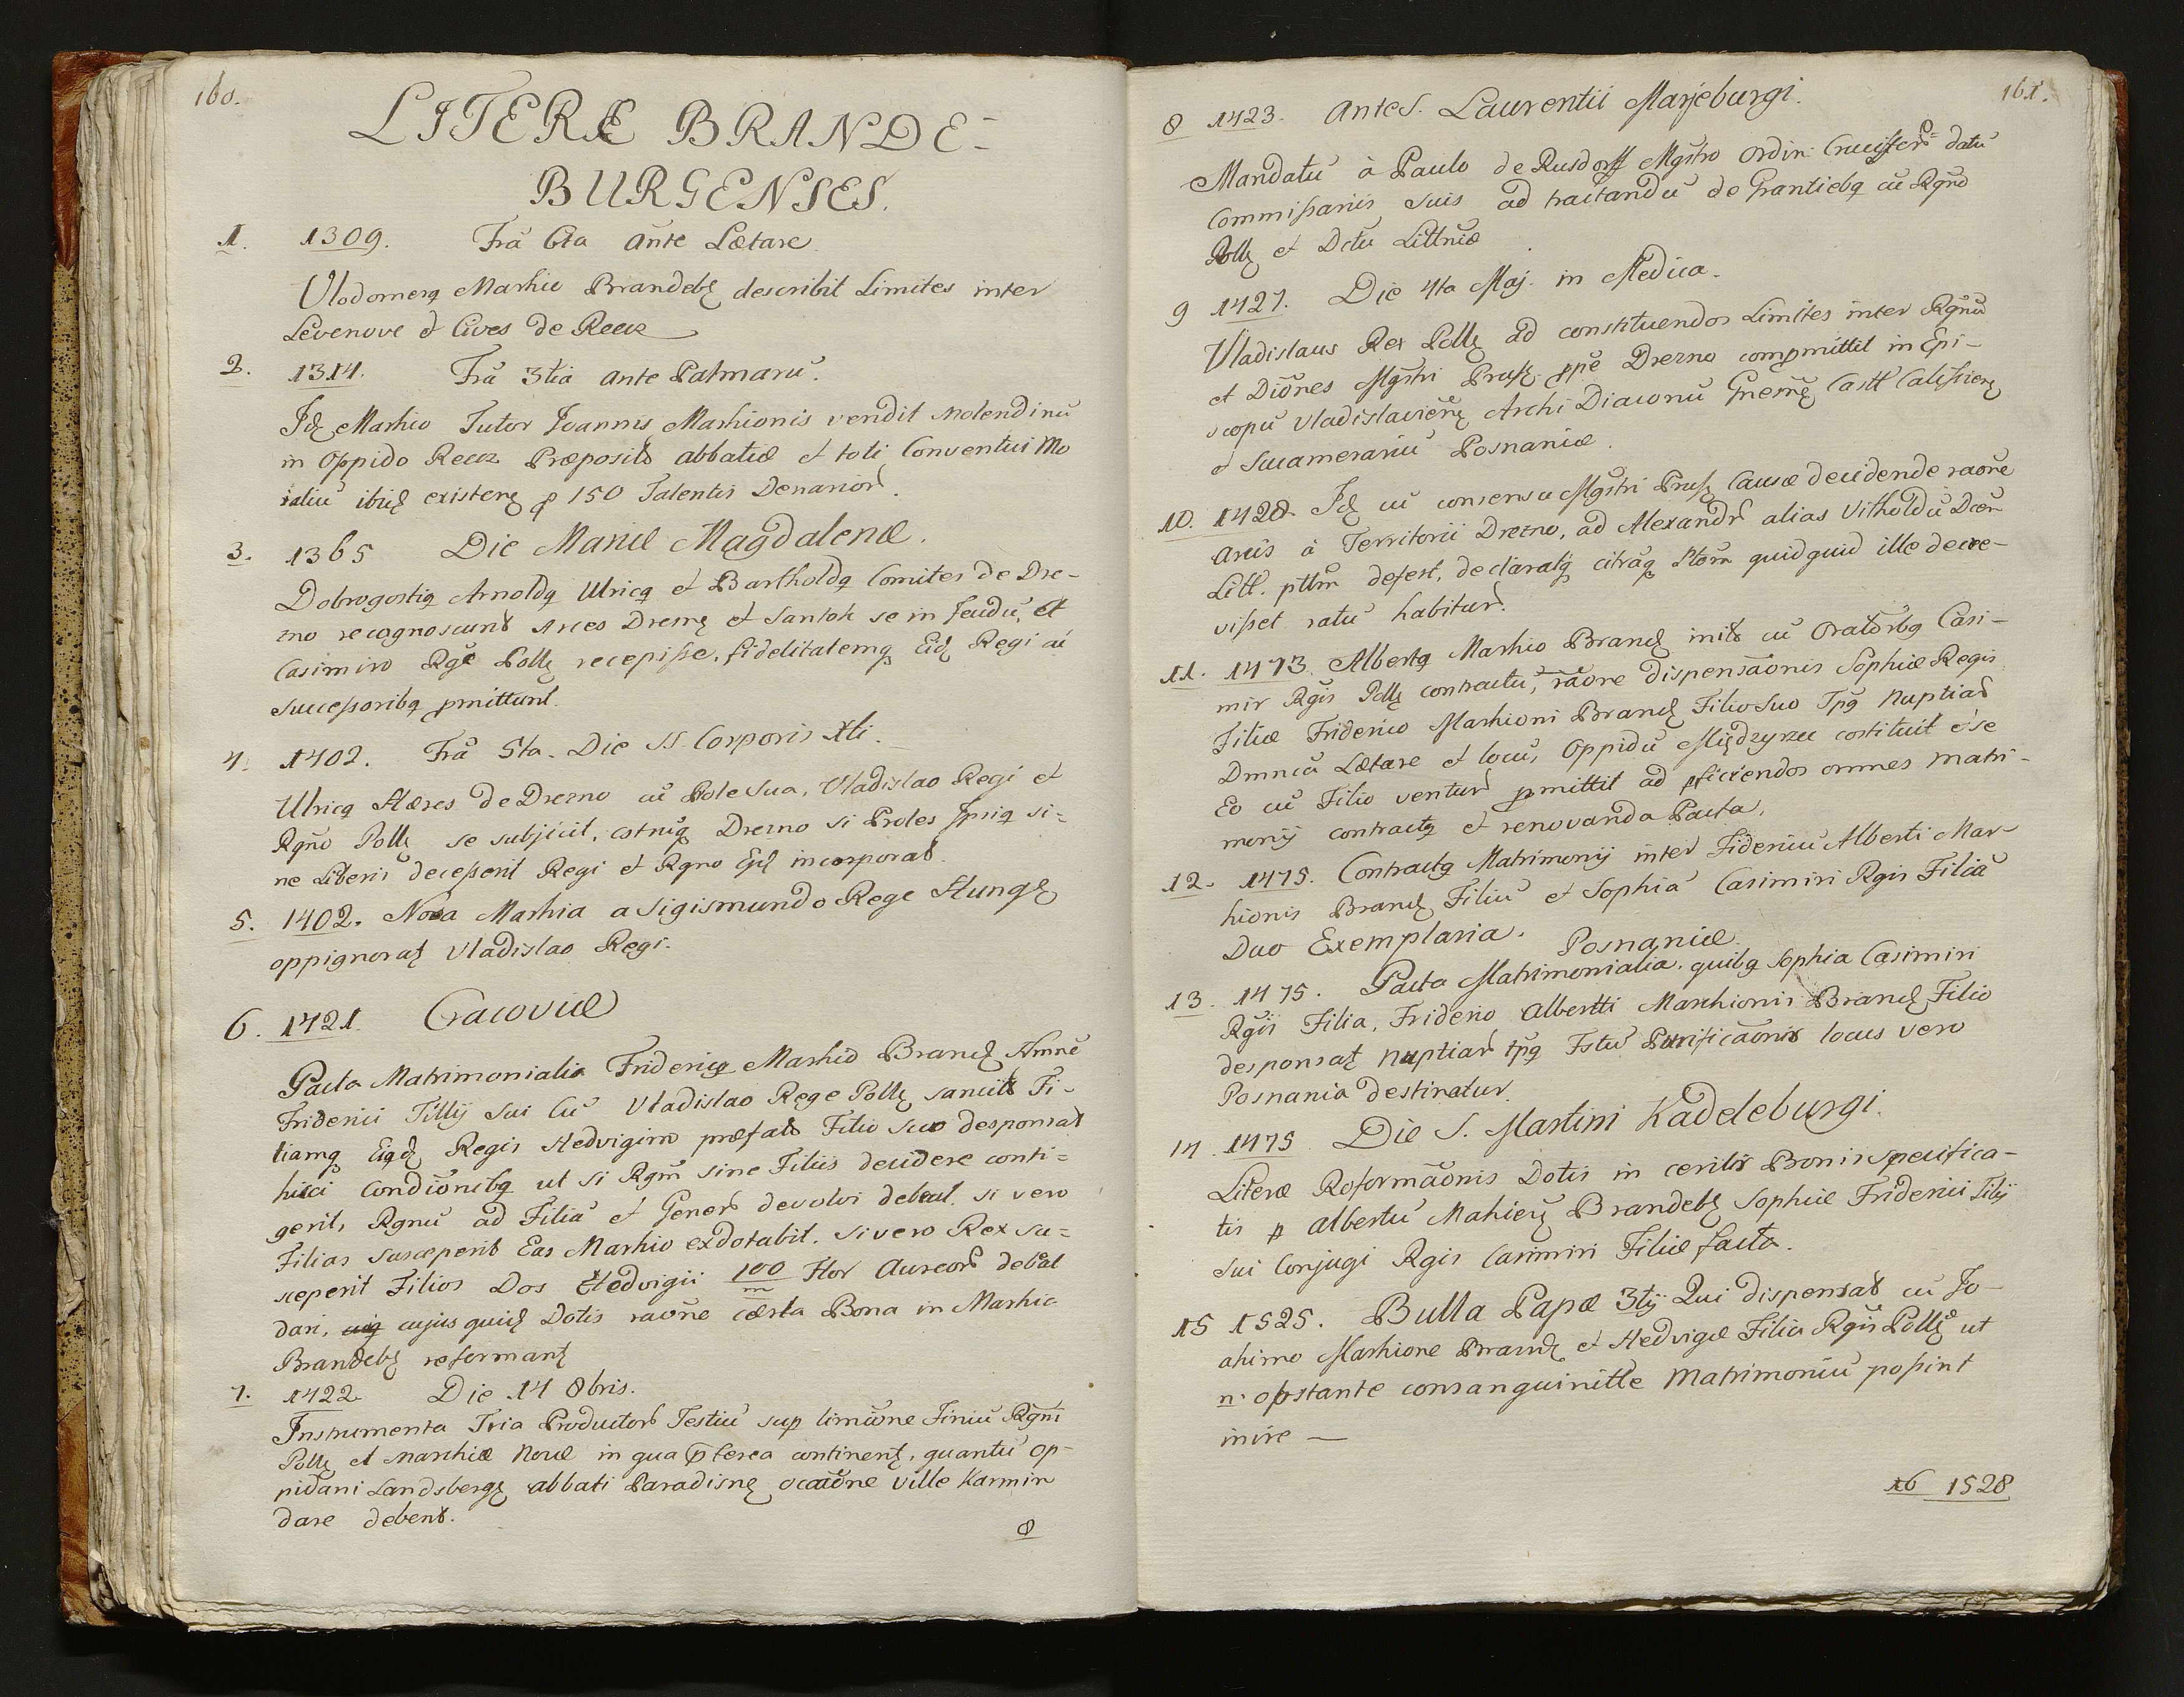 160.
LITERÆ BRANDE=
BURGENSES.
1. 1309. Frã 6ta ante Lætare.
Vlodomerq Marhio Brandebȩ describit Limites inter
Levenove et Cives de Reecz
2. 1314. Frã 3tia ante Palmarũ.
Jdȩ Marhio Tutor Joannis Marhionis vendit Molendinũ
in Oppido Reecz Præposito abbatiæ et toti Conventui Mo
nialiũ ibidȩ existenȩ p 150 Talentis Denarior.
3. 1365 Die Mariæ Magdalenæ.
Dobrogostiq Arnoldq Ulricq et Bartholdq Comites de Dre-
zno recognoscunt Arces Dreznȩ et Santok se in feudũ, et
Casimiro Rge Pollȩ recepisse, fidelitatemq Eidȩ Regi ac
successoribq pmittunt.
4. 1402. Frã 5ta. Die SS. Corporis Xti.
Ulricq Hæres de Drezno cũ Prole sua, Vladislao Regi et
Rgño Pollȩ se subjicit, castruq Drezno si Proles Ipsiq si=
ne Liberis decesserit Regi et Rgno Ejdȩ incorporat.
5. 1402. Nova Marhia a Sigismundo Rege Hungȩ
oppignoratȩ Vladislao Regi.
6. 1421. Cracoviæ
Pacta Matrimonialia Fridericq Marhio Brandȩ Nmne
Friderici Filij sui Cũ Vladislao Rege Pollȩ sancit Fi-
liamq Eiqdȩ Regis Hedvigim præfato Filio suo desponsat
hisci Condiõnibq ut si Rgm̃ sine Filiis decidere conti=
gerit, Rgnũ ad Filiã et Generũ devolvi debeat. si vero
Filias susceperit Eas Marhio exdotabit. si vero Rex su=
sceperit Filios Dos Hedvigii 100/m Flor Aureorũ debeat
dari, cujus quidȩ Dotis raõne cærta Bona in Marhia
Brandebȩ reformantȩ
7. 1422. Die 14 8bris.
Instrumenta Tria Productorũ Testiũ sup limiõne Finiũ Rgni
Pollȩ et Marchiæ Novæ in qua pterea continentȩ, quantũ op-
pidani Landsbergȩ abbati Paradisnȩ ocaõne Ville Karmin
dare debent.
8
161.
8 1423. Ante S. Laurentii Marjeburgi.
Mandatũ à Paulo de Rusdorff Mgstro Ordin Cruciferor datũ
Commissariis suis ad tractandũ de Grantiebq cũ Rgno
Pollȩ et Dctu Littniæ
9 1427. Die 4ta Maj. in Medica.
Vladislaus Rex Pollȩ ad constituendos Limites inter Rgnũ
et Diõnes Mgstri Prusȩ ppe Drezno compmittit in Epi-
scopũ Vladislavienȩ Archi Diaconũ Gnesnȩ Castl Calissienȩ
et Succamerariũ Posnaniæ.
10. 1428. Jdȩ cũ consensu Mgstri Prusȩ Causæ decidende raõne
Arcis à Territorii Drezno, ad Alexandrũ alias Vitholdũ Ducem
Litt. pttm defert, declaratq citraq Ptom quidquid ille decre-
visset ratũ habiturũ.
11. 1473. Albertq Marhio Brandȩ init cũ Oratoribq Casi-
mir Rgis Pollȩ contractũ, raõne dispensaõnis Sophiæ Regis
Filiæ Friderico Marhioni Brandȩ Filio Suo Tpq Nuptiarũ
Dmnicã Lætare et locũ, Oppidũ Międzyrzec costituit ése
Eo cũ Filio venturũ pmittit ad pficiendos omnes matri-
monij contractq et renovanda Pacta.
12. 1475. Contractq Matrimonij inter Fidericũ Alberti Mar-
hionis Brandȩ Filiũ et Sophiã Casimiri Rgis Filiã
Duo Exemplaria. Posnaniæ.
13. 1475. Pacta Matrimonialia, quibq Sophia Casimiri
Rgis Filia, Friderio Albertti Marchionis Brandȩ Filio
desponsatȩ nuptiarũ tpq Fstũ Purificaõnis locus vero
Posnania destinatur.
14. 1475 Die S. Martini Kadeleburgi.
Literæ Reformaõnis Dotis in certis Bonis specifica-
tis p Albertũ Mahienȩ Brandebȩ Sophiæ Friderici Filij
sui Conjugi Rgis Casimiri Filiæ facta.
15 1525. Bulla Papæ 3tij Qui dispensat cũ Jo-
ahimo Marhione Brandȩ et Hedvigæ Filia Rgis Pollȩ ut
n. obstante consanguinitte Matrimoniũ possint
inire —
16 1528